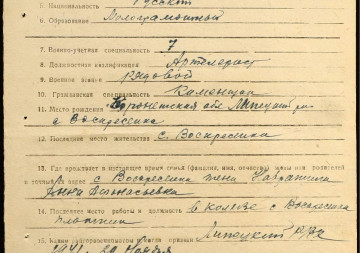 5. Национальность русский
6. Образование Малограмотный
7. Военно-учетная специальность 7
8. Должностная квалификация Артелерист
9. Военное звание рядовой
10. Гражданская специальность Каменщик
11. Место рождения Воронежская обл. Липецкий р-н
с Воскресенка
12. Последнее место жительства с. Воскресенка
13. Где проживает в настоящее время семья (фамилия, имя, отчество жены или родителей
и точный их адрес с Воскресенка жена
Афонасьевна
14. Последнее место работы и должность в колхозе с Воскресенка
плотник
15. Каким райгорвоенкоматом призван Липецкий РВК
1941